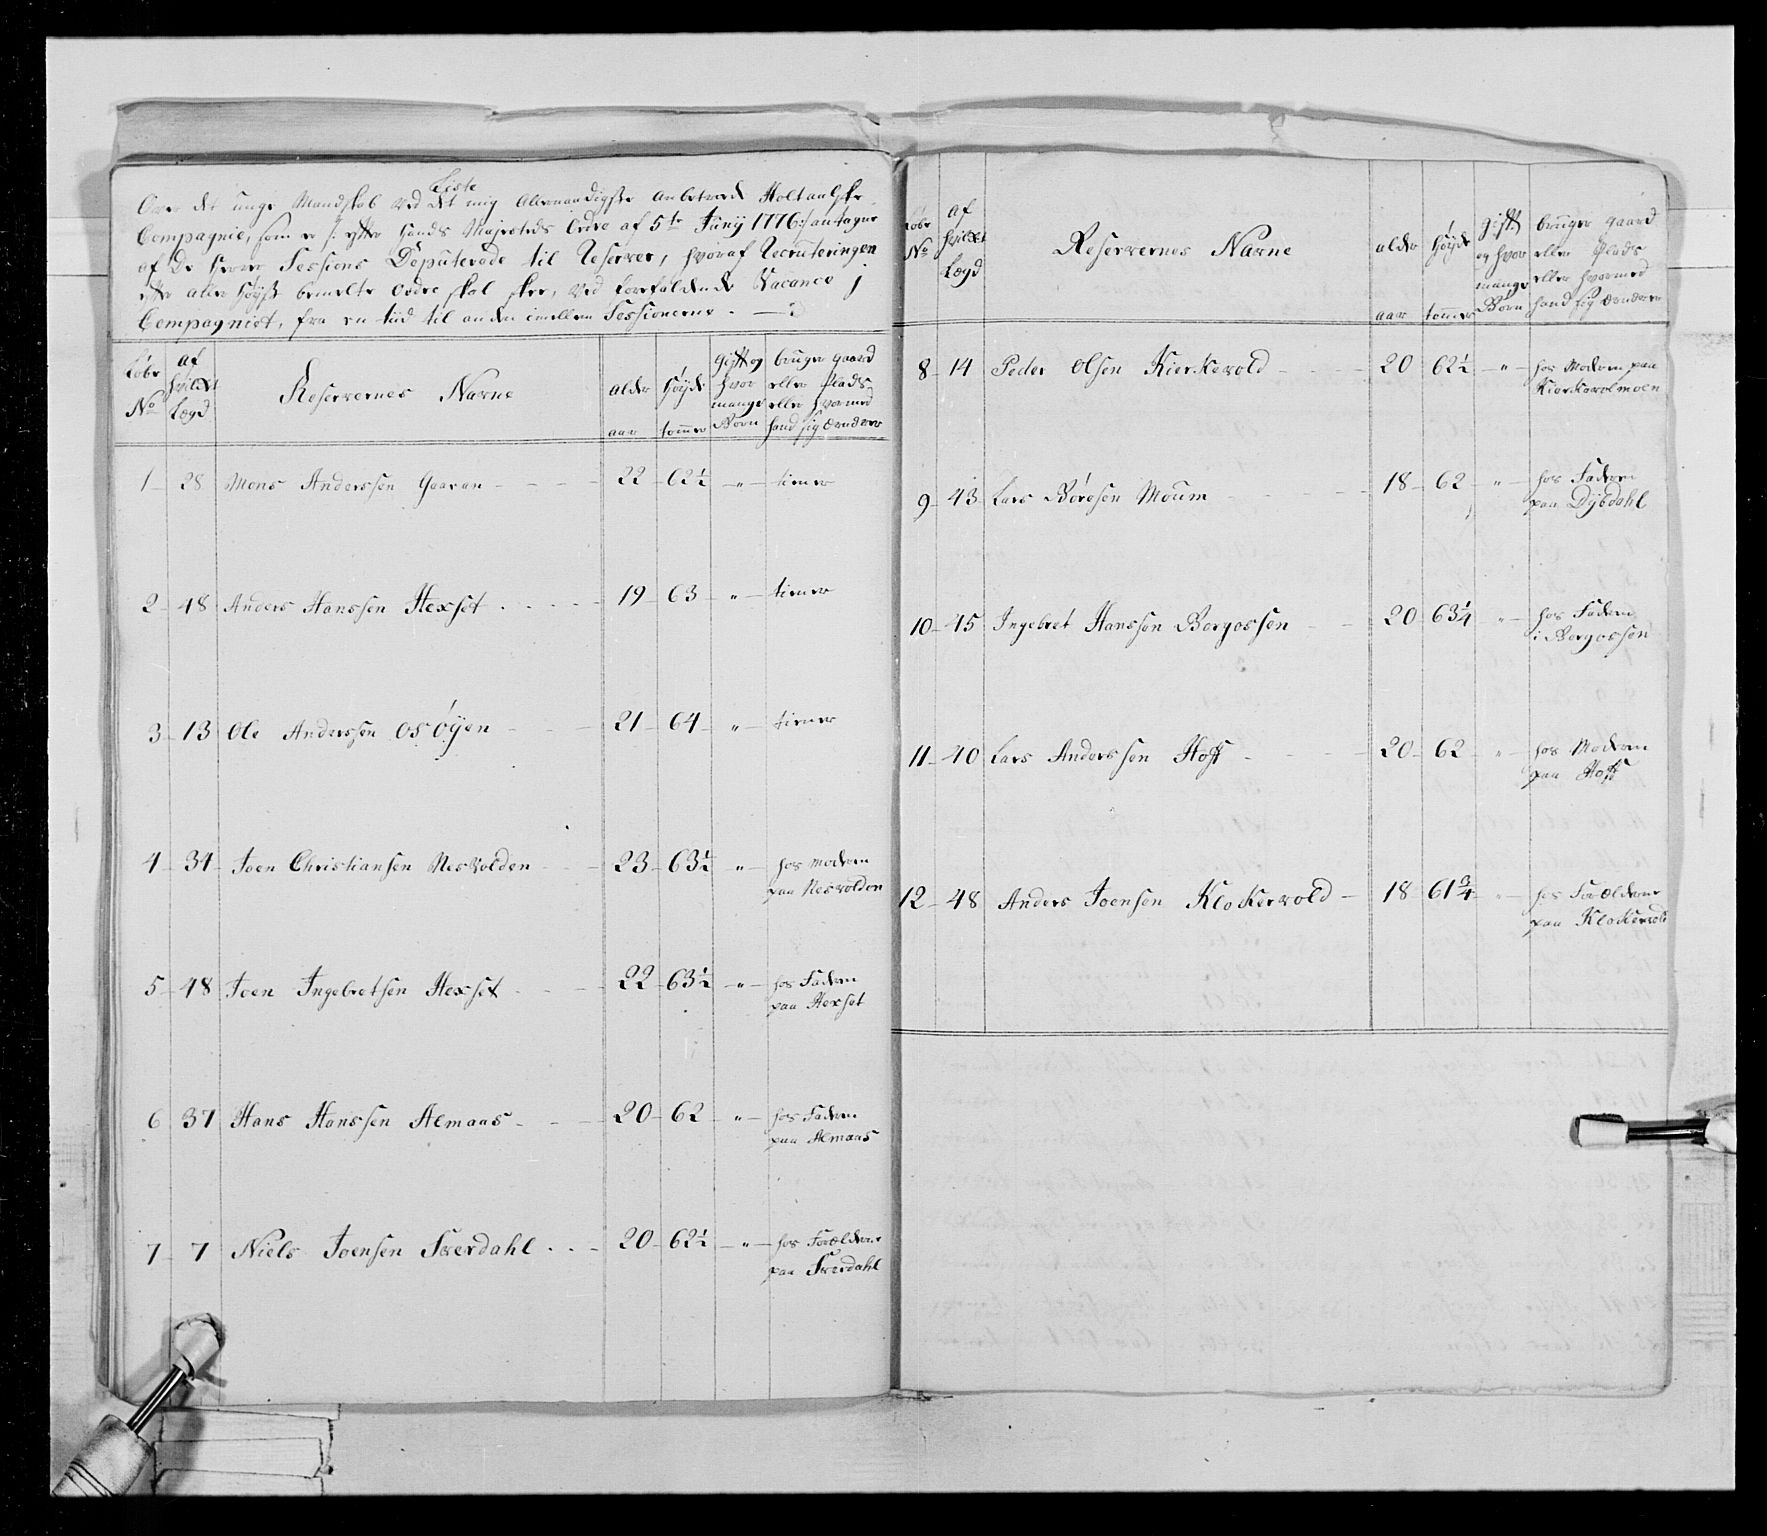 Liste
Over det unge Mandskab ved det mig Allernaadigste anbetroede Holtaalske
Compagnie, som er /: efter Hands Majestets Ordre af 5te Junÿ 1776 :/ antagne
af De Herrer Sessions Deputerede til Reserver, hvoraf Recruteringen
efter aller høÿst bemelte Ordre skal skee, ved forefaldende Vacance j
Compagniet, fra en tiid til anden imellem Sessionerne.
Løbe No
af hvilket Lægd
Reservernes Navne
alder aar
Høÿde tommer
gift og hvor mange Børn
bruger gaard eller Plads eller hvormed hand sig ernærer
1 28 Mons Anderssen Gaaran 22 62½ " tiener
2 48 Anders Hanssen Hexset 19 63 " tiener
3 13 Ole Anderssen Osøÿen 21 64 " tiener
4 34 Joen Christiansen Nesvolden 23 63½ " hos Modren
paa Nesvolden
5 48 Joen Ingebretsen Hexset 22 63½ " hos Fadren
paa Hexset
6 37 Hans Hanssen Almaas 20 62 " hos Fadren
paa Almaas
7 7 Niels Joensen Sverdahl 20 62½ " hos Forældrene
paa Sverdahl
Løbe No
af hvilket Lægd
Reservernes Navne
alder aar
Høÿde tommer
gift og hvor mange Børn
bruger gaard eller Plads eller hvormed hand sig ernærer
8 14 Peder Olsen Kierkevold 20 62½ " hos Modren paa
Kierkevolmoen
9 43 Lars Børesen Moum 18 62 " hos Fadren
paa Dÿbdahl
10 45 Ingebret Hanssen Borgossen 20 63¼ " hos Fadren
i Borgossen
11 40 Lars Anderssen Hoff 20 62 " hos Modren
paa Hoff
12 48 Anders Joensen Klokervold 18 61¾ " hos Forældrene
paa Klokervold